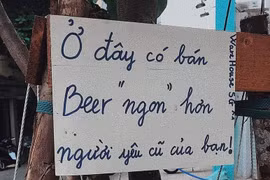 Ở đây có bán
Beer "ngon" hơn
người yêu cũ của bạn!
Ware House